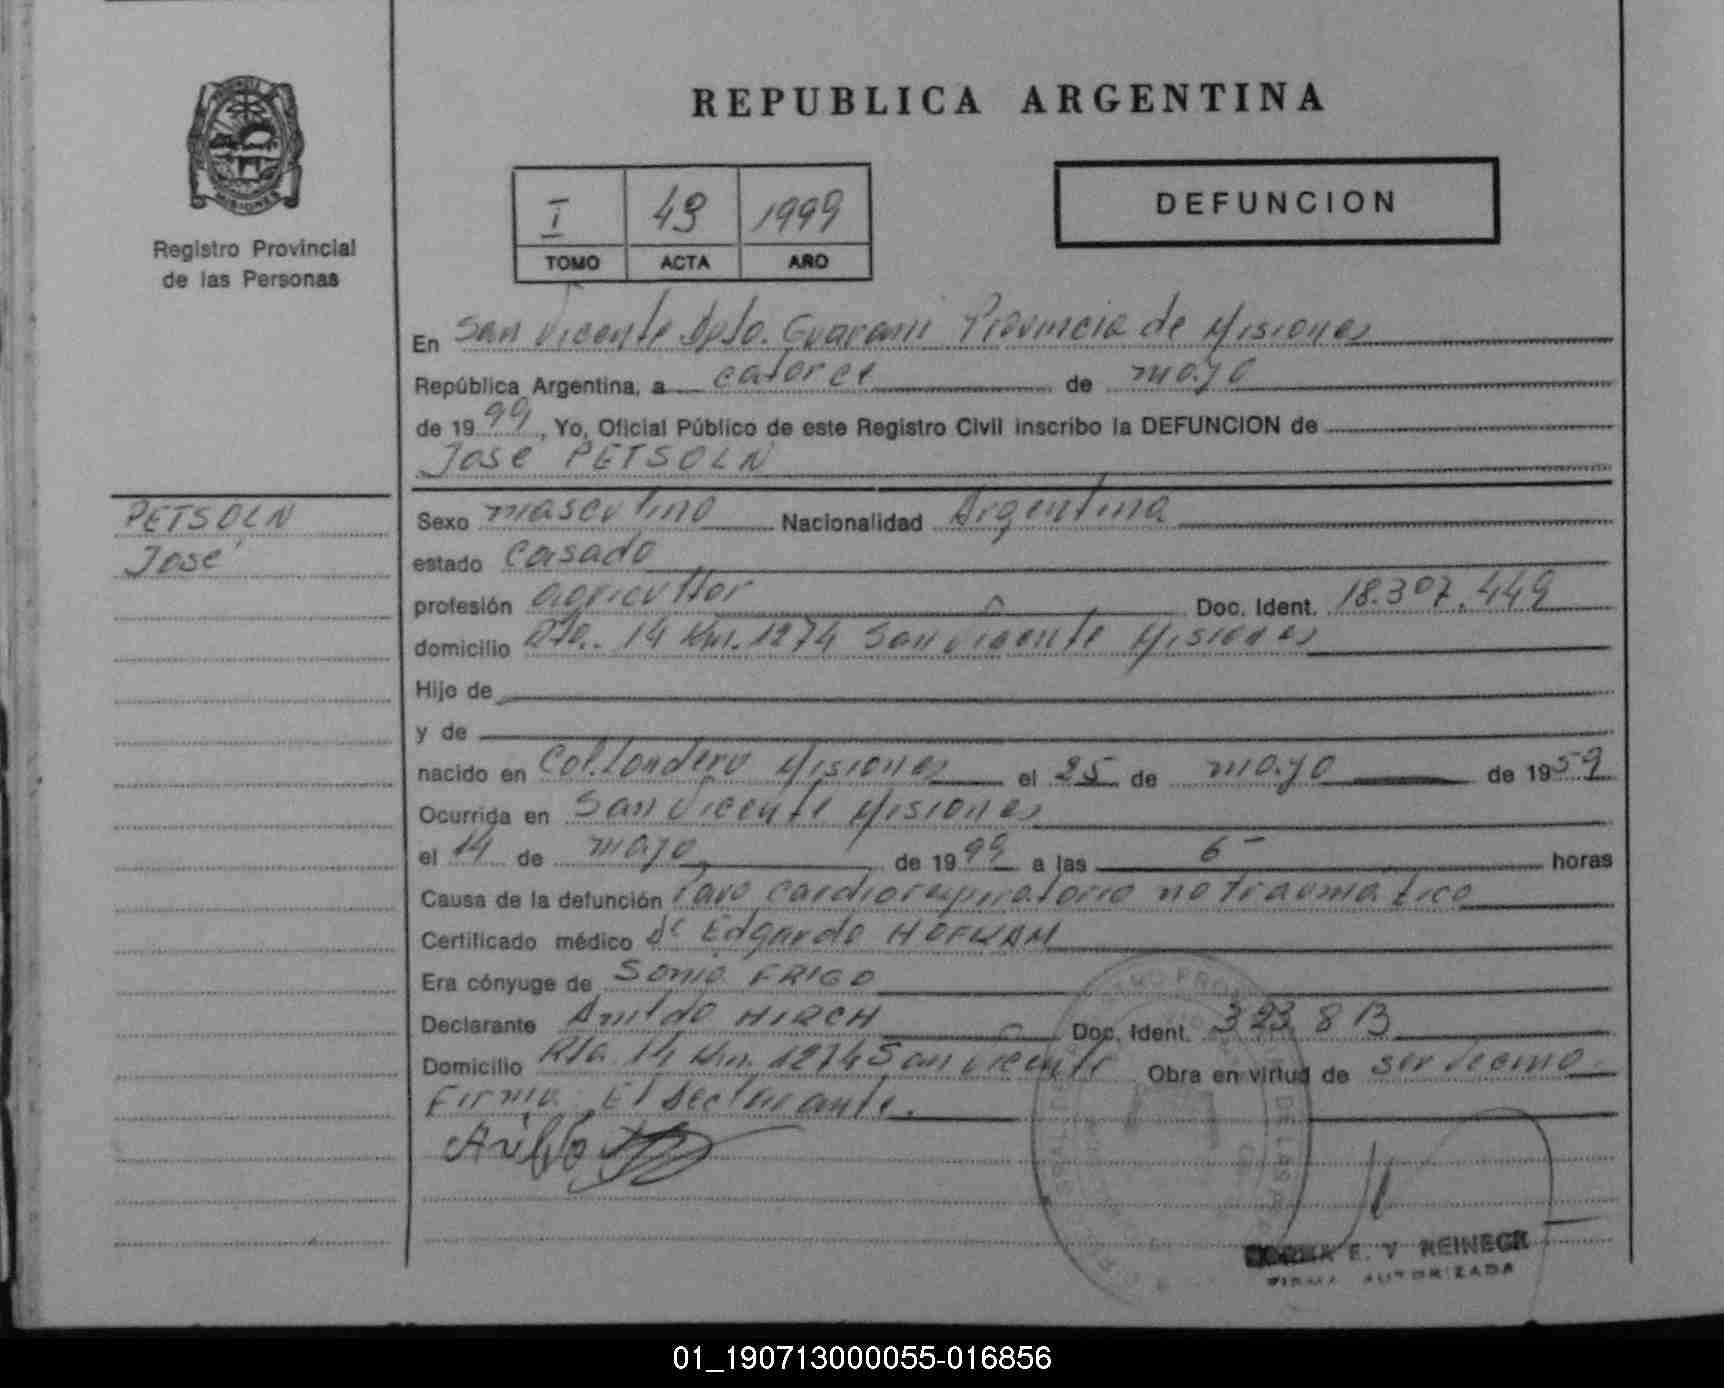 MISIONES
Registro Provincial
de las Personas
REPUBLICA ARGENTINA
I 49 1999
TOMO ACTA AÑO
DEFUNCION
En San Vicente Dpto. Guarani Provincia de Misiones
República Argentina, a catorce de mayo
de 1999, Yo, Oficial Público de este Registro Civil inscribo la DEFUNCION de
José PETSOLN
PETSOLN
José
Sexo masculino Nacionalidad Argentina
estado Casado
profesión agricultor Doc. Ident. 18.307.449
domicilio Rta. 14 Km. 1274 San Vicente Misiones
Hijo de
y de
nacido en Col. Londero Misiones el 25 de mayo de 1959
Ocurrida en San Vicente Misiones
el 14 de mayo de 1999 a las 6 horas
Causa de la defunción Paro cardiorespiratorio no traumático
Certificado médico Dr Edgardo
Era cónyuge de Sonia FRIGO
Declarante Arnildo HIRCH Doc. Ident. 323.813
Domicilio Rta 14 Km. 1274 San Vicente Obra en virtud de ser vecino
Firma El declarante.
E. V. REINECK
FIRMA AUTORIZADA
01_190713000055-016856